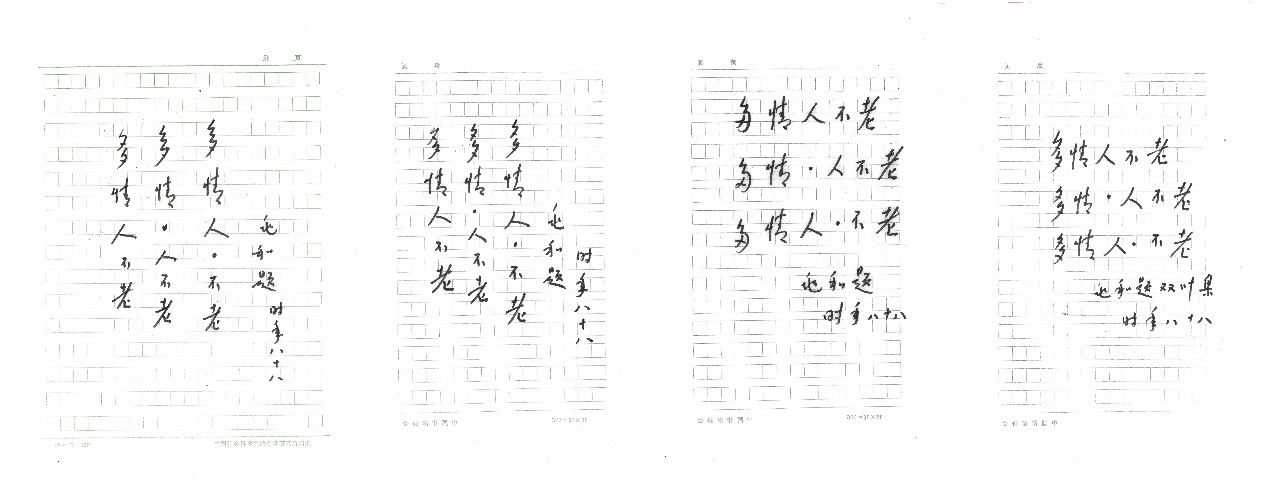 第 页
多情人不老
多情·人不老
多情人·不老
和题
时年八十八
页 第
多情人不老
多情·人不老
多情人·不老
和题
时年八十八
页 第
多情人不老
多情·人不老
多情人·不老
和题
时年八十八
页 第
多情人不老
多情·人不老
多情人·不老
和题双叶集
时年八十八